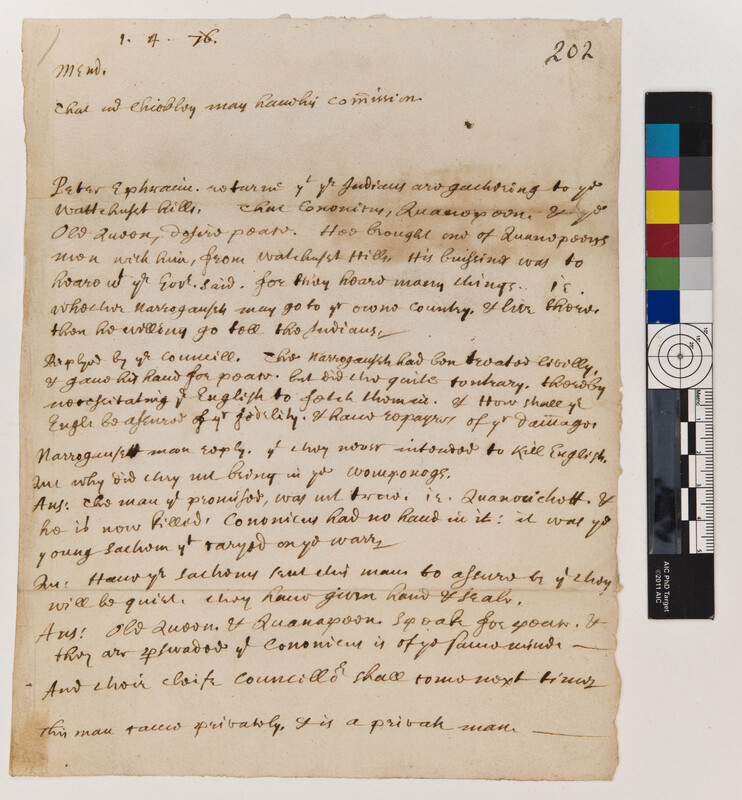 1. 4 - 76.
202
Mend.
That
may have his Comission.
Peter Ephraim. returne yt ye Indians are gathering to ye
Wattchuset hills. That Cononicus, Quanopeen. & ye
Old Queen, desire peace. Hee brought one of Quanopeens
men with him, from Watchuset Hills. His buissines was to
heare wt ye Govr. said. for they heard many things. ie.
whether Narrogansett may go to yr owne Country, & live there.
then he willing go tell the Indians,
Replyed by ye Councill. The Narrogansett had ben treated Civilly,
& gave his hand for peace. but did the quite contrary. thereby
necessitating ye English to fetch them in. & How shall ye
Engle be assured of yr fidelity. & have repayrs of yr Damage.
Narrogansett man reply. yt they never intended to kill English.
Qu: why did they not bring in ye Womponogs.
Ans: The man yt promised, was not true. ie. Quanonchett. &
he is now killed. Cononicus had no hand in it: it was ye
young sachem yt caryed on ye warr,
Qu: Have ye sachems sent this man to assure us yt they
will be quiet. they have given hand & seale.
Ans: Old Queen. & Quanapeen. speake for peace. &
they are pswaded yt Cononicus is of ye same minde —
And their cheife Councillor shall come next time,
This man came privately, & is a private man. —
AIC PhD Target
©2011 AIC